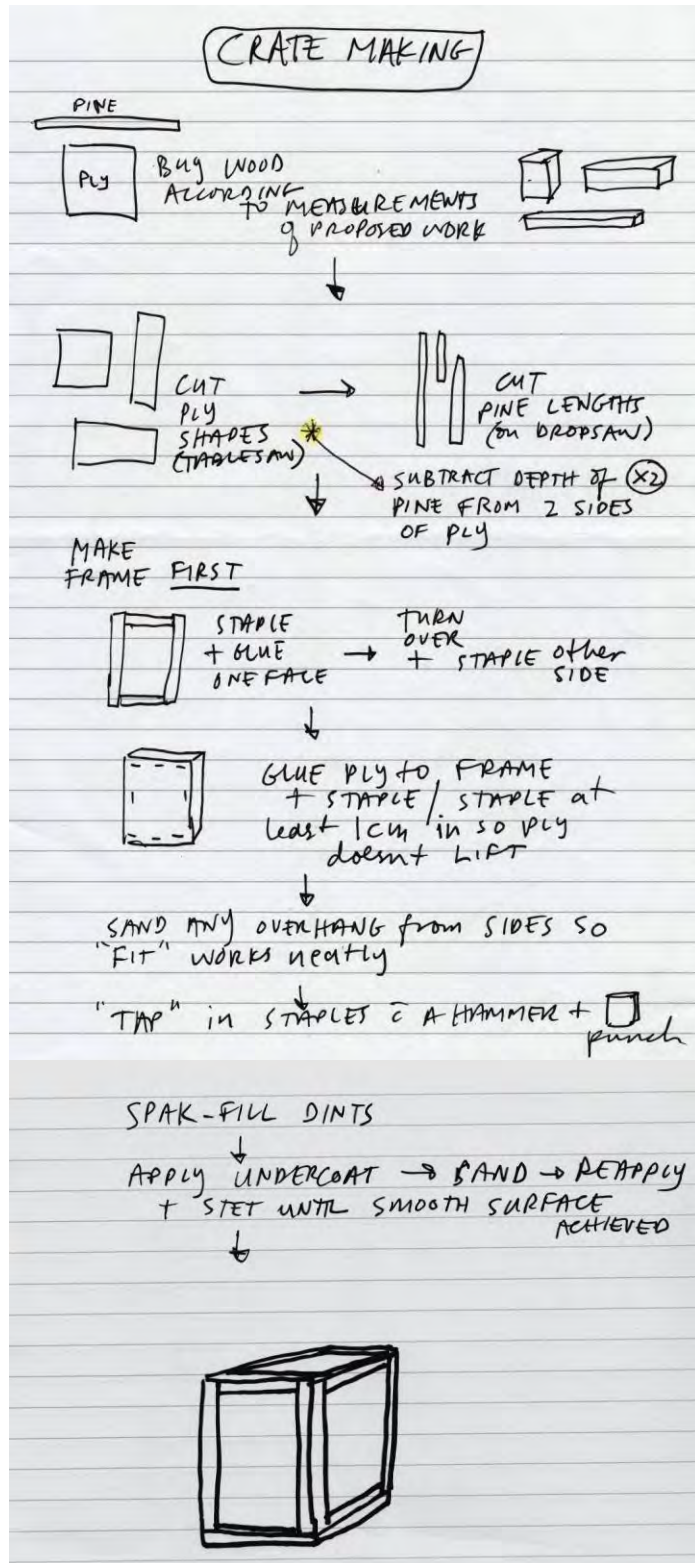 CRATE MAKING
PINE
PLY
BUY WOOD
ACCORDING
TO MEASUREMENTS
of PROPOSED WORK
CUT
PLY
SHAPES
(TABLESAW)
*
CUT
PINE LENGTHS
(on DROPSAW)
SUBTRACT DEPTH of X2
PINE FROM 2 SIDES
OF PLY
MAKE
FRAME FIRST
STAPLE
+ GLUE
ONE FACE
TURN
OVER
+ STAPLE other
SIDE
GLUE PLY to FRAME
+ STAPLE / STAPLE at
least 1cm in so PLY
doesnt LIFT
SAND ANY OVERHANG from SIDES SO
"FIT" WORKS neatly
"TAP" in STAPLES c̄ A HAMMER +
punch
SPAK-FILL DINTS
APPLY UNDERCOAT → SAND → REAPPLY
+ STET UNTIL SMOOTH SURFACE
ACHIEVED